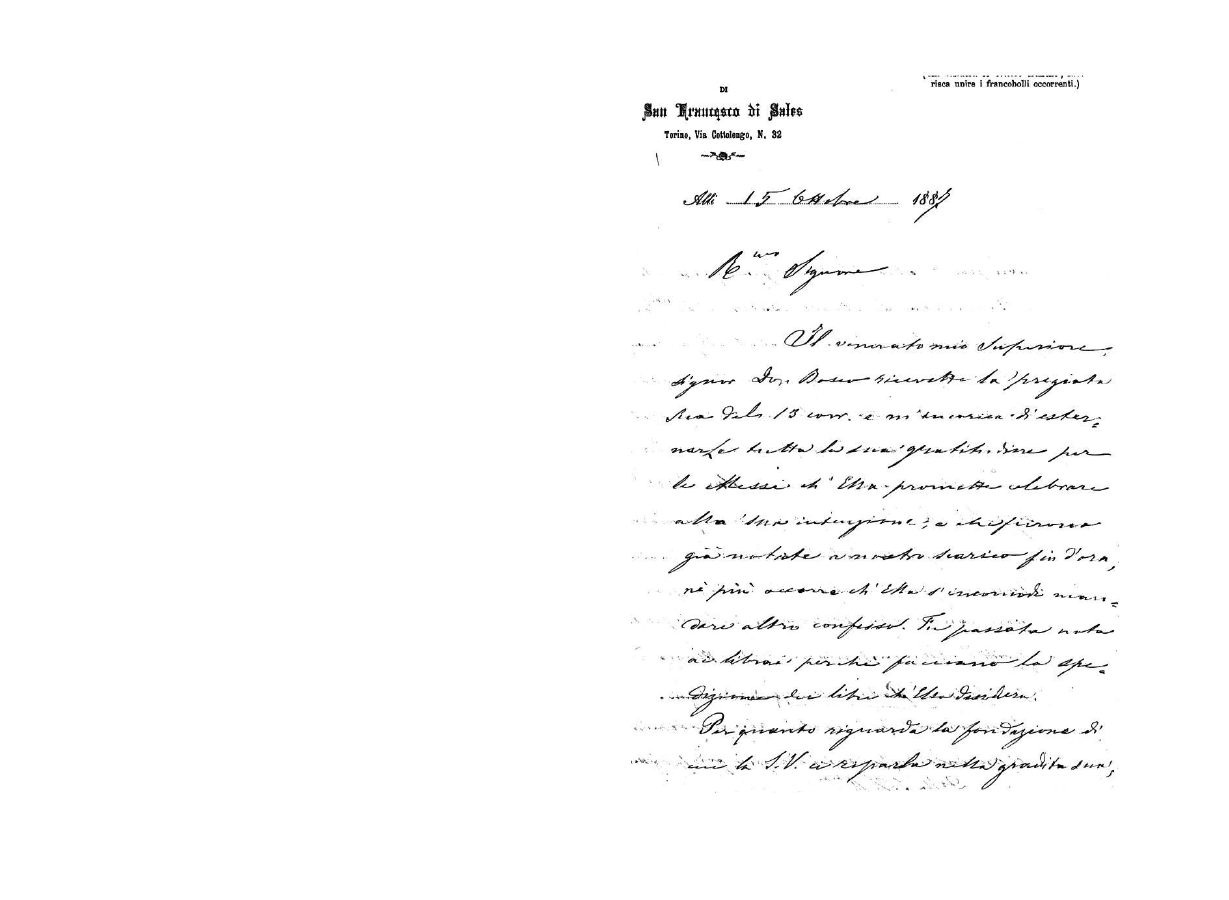 risca unire i francobolli occorrenti.)
DI
San Francesco di Sales
Torino, Via Cottolengo, N. 32
Alli 15 Ottobre 1887
R.mo Signore
Il venerato mio Superiore,
Signor Don Bosco ricevette la pregiata
Sua del 13 corr. e m'incarica di ester-
narle tutta la sua gratitudine per
le Messe ch'Ella promette celebrare
alla Sua intenzione; e che furono
già notate a nostro scarico fin d'ora,
nè più occorre ch'Ella s'incomodi man-
dare altro confesso. Fu passata nota
ai librai perchè facciano la spe-
dizione dei libri ch'Ella desidera.
Per quanto riguarda la fondazione di
cui la S.V. ci riparla nella gradita sua,